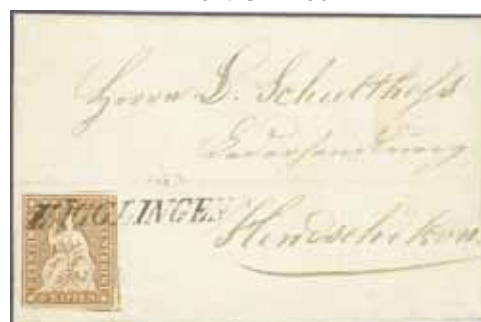 Herrn Schulthess
Lederhandlung
HÄGGLINGEN
Hendschikon